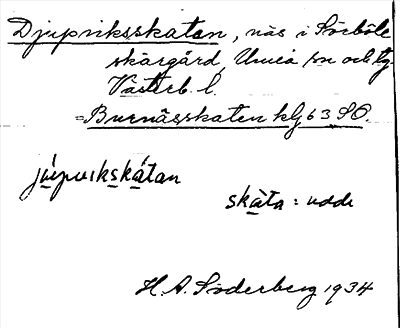 Djupviksskatan, näs i Sörböle
skärgård, Umeå sn och tg
Västerb. l.
= Burnässkaten klj 63 SO.
júpvikskátan
skàta : udde
H. A. Söderberg 1934